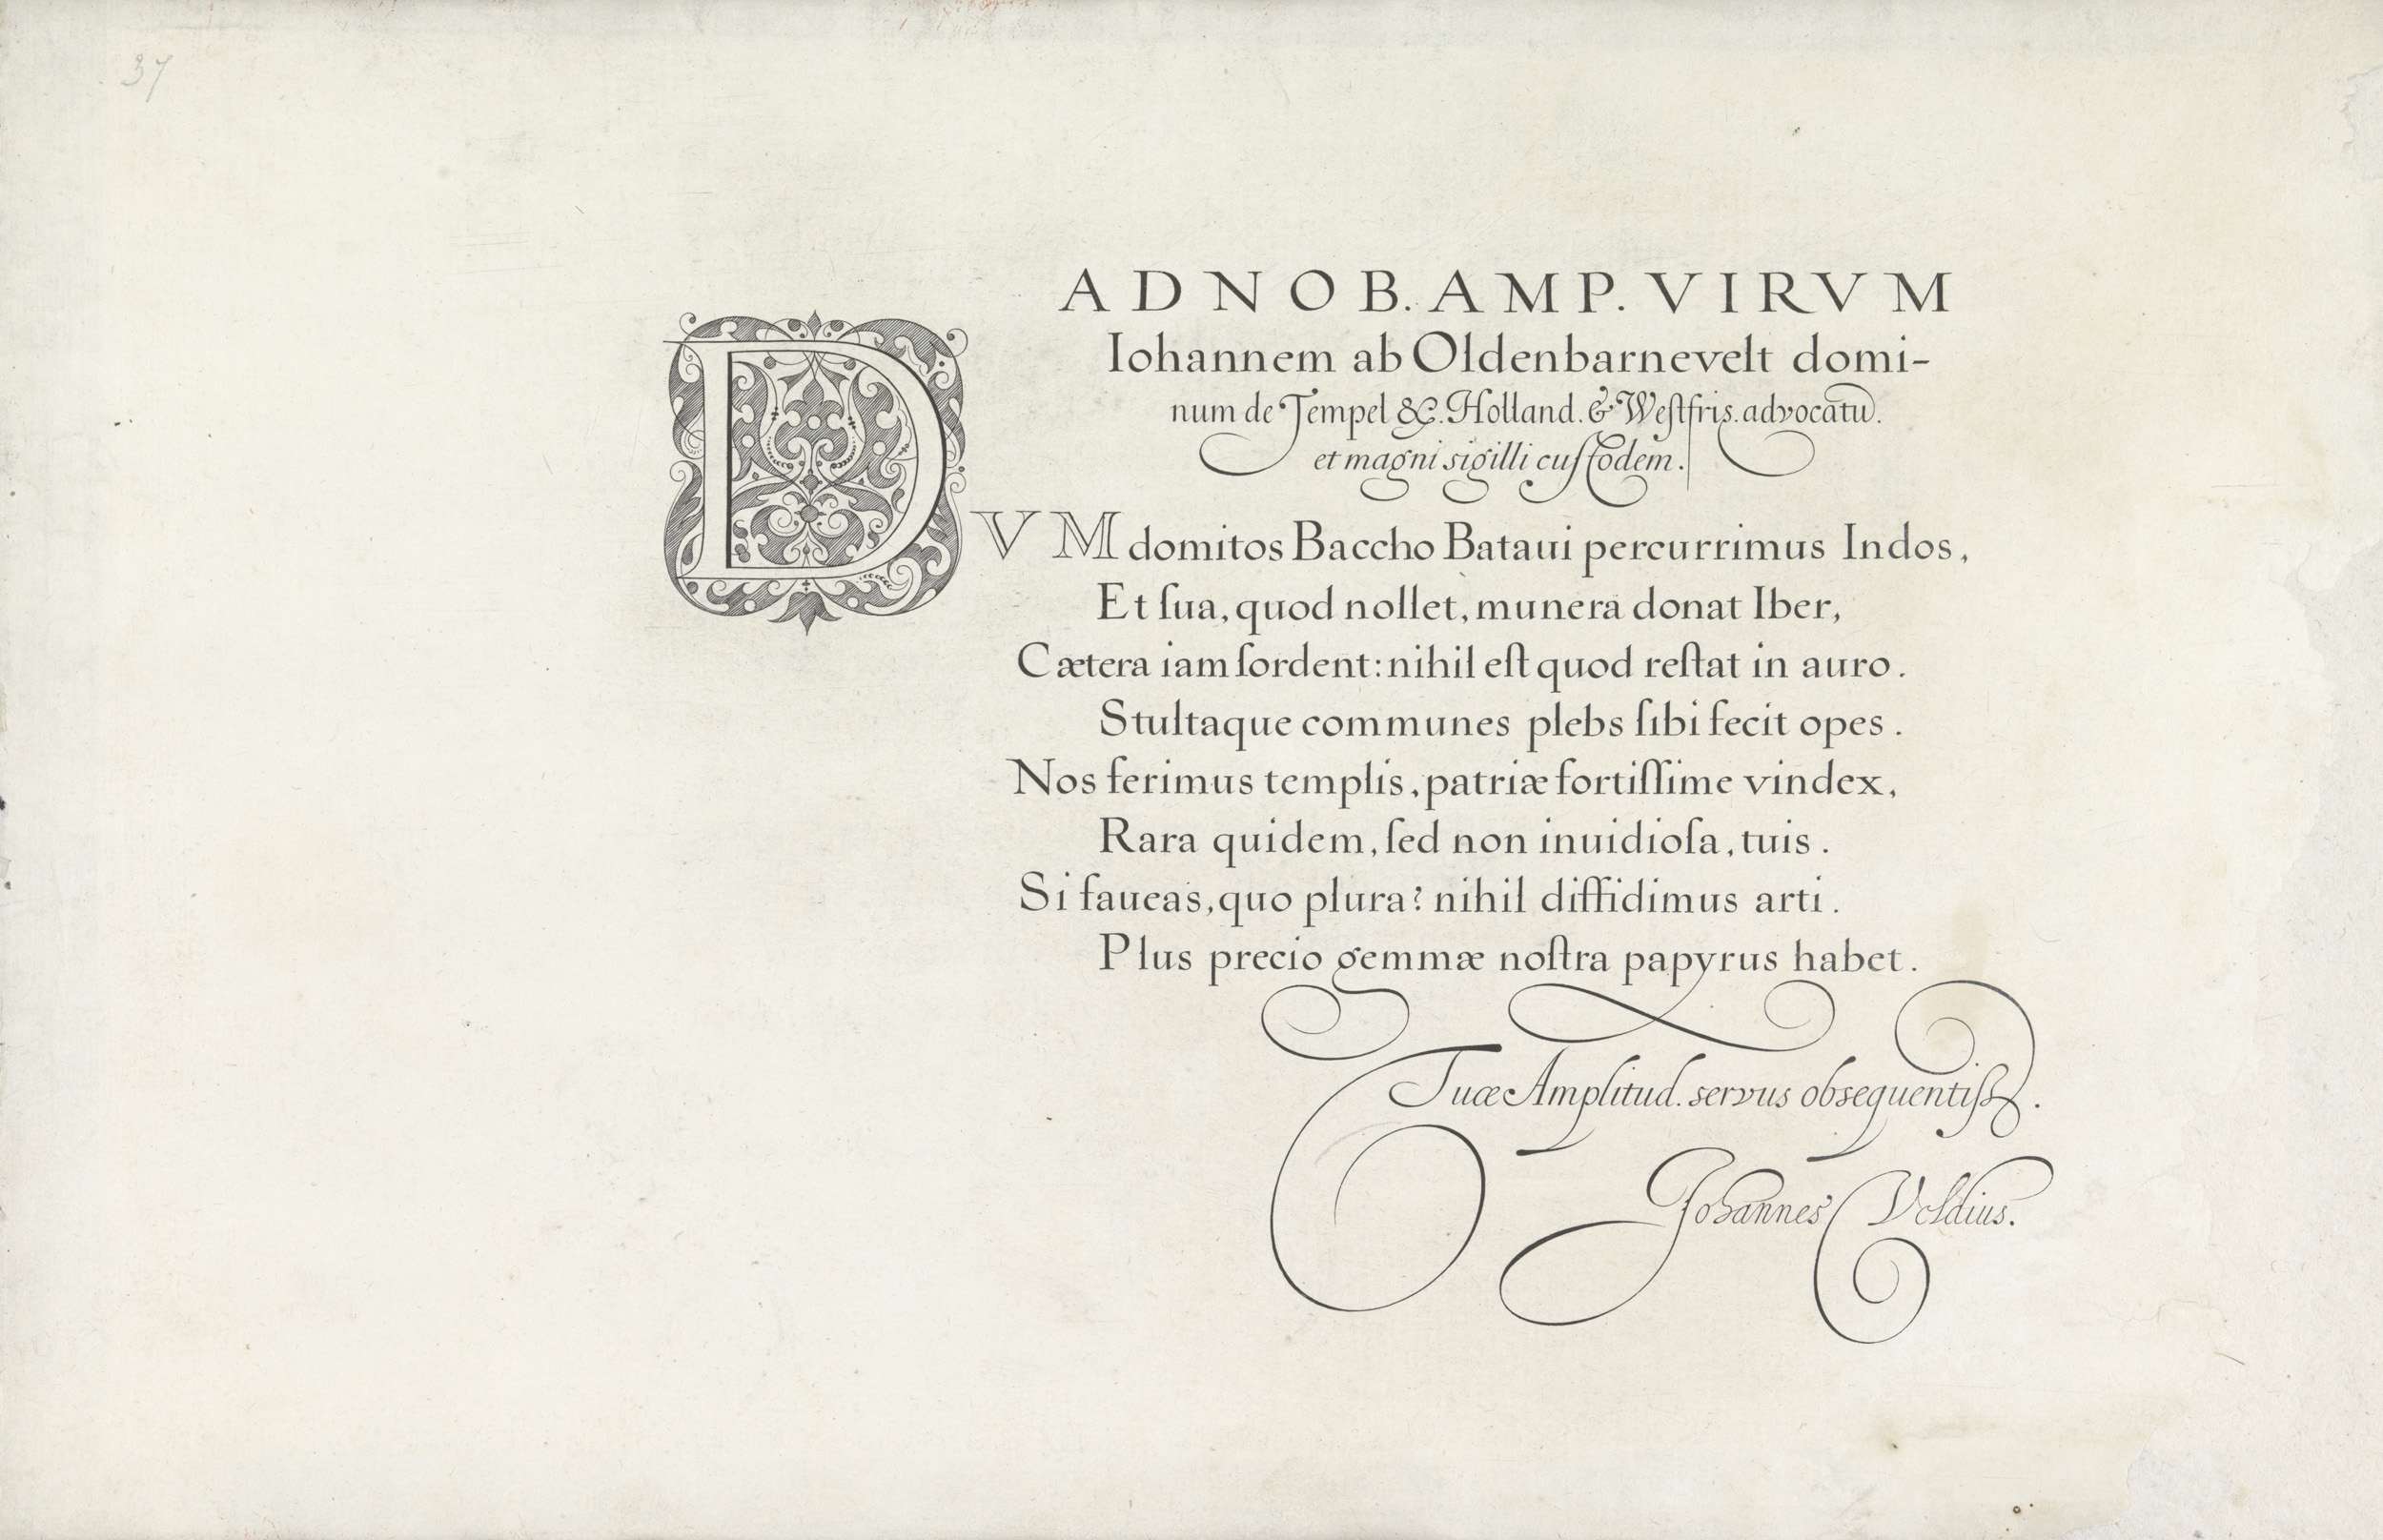 37
AD NOB. AMP. VIRVM
Iohannem ab Oldenbarnevelt domi-
num de Tempel &c. Holland. & Weſtfris. advocatū.
et magni sigilli cuſtodem.
DVM domitos Baccho Bataui percurrimus Indos,
Et ſua, quod nollet, munera donat Iber,
Cætera iam ſordent: nihil eſt quod reſtat in auro.
Stultaque communes plebs ſibi fecit opes.
Nos ferimus templis, patriæ fortiſſime vindex,
Rara quidem, ſed non inuidioſa, tuis.
Si faueas, quo plura? nihil diffidimus arti.
Plus precio gemmæ noſtra papyrus habet.
Tuæ Amplitud. servus obsequentiſſ.
Johannes Veldius.